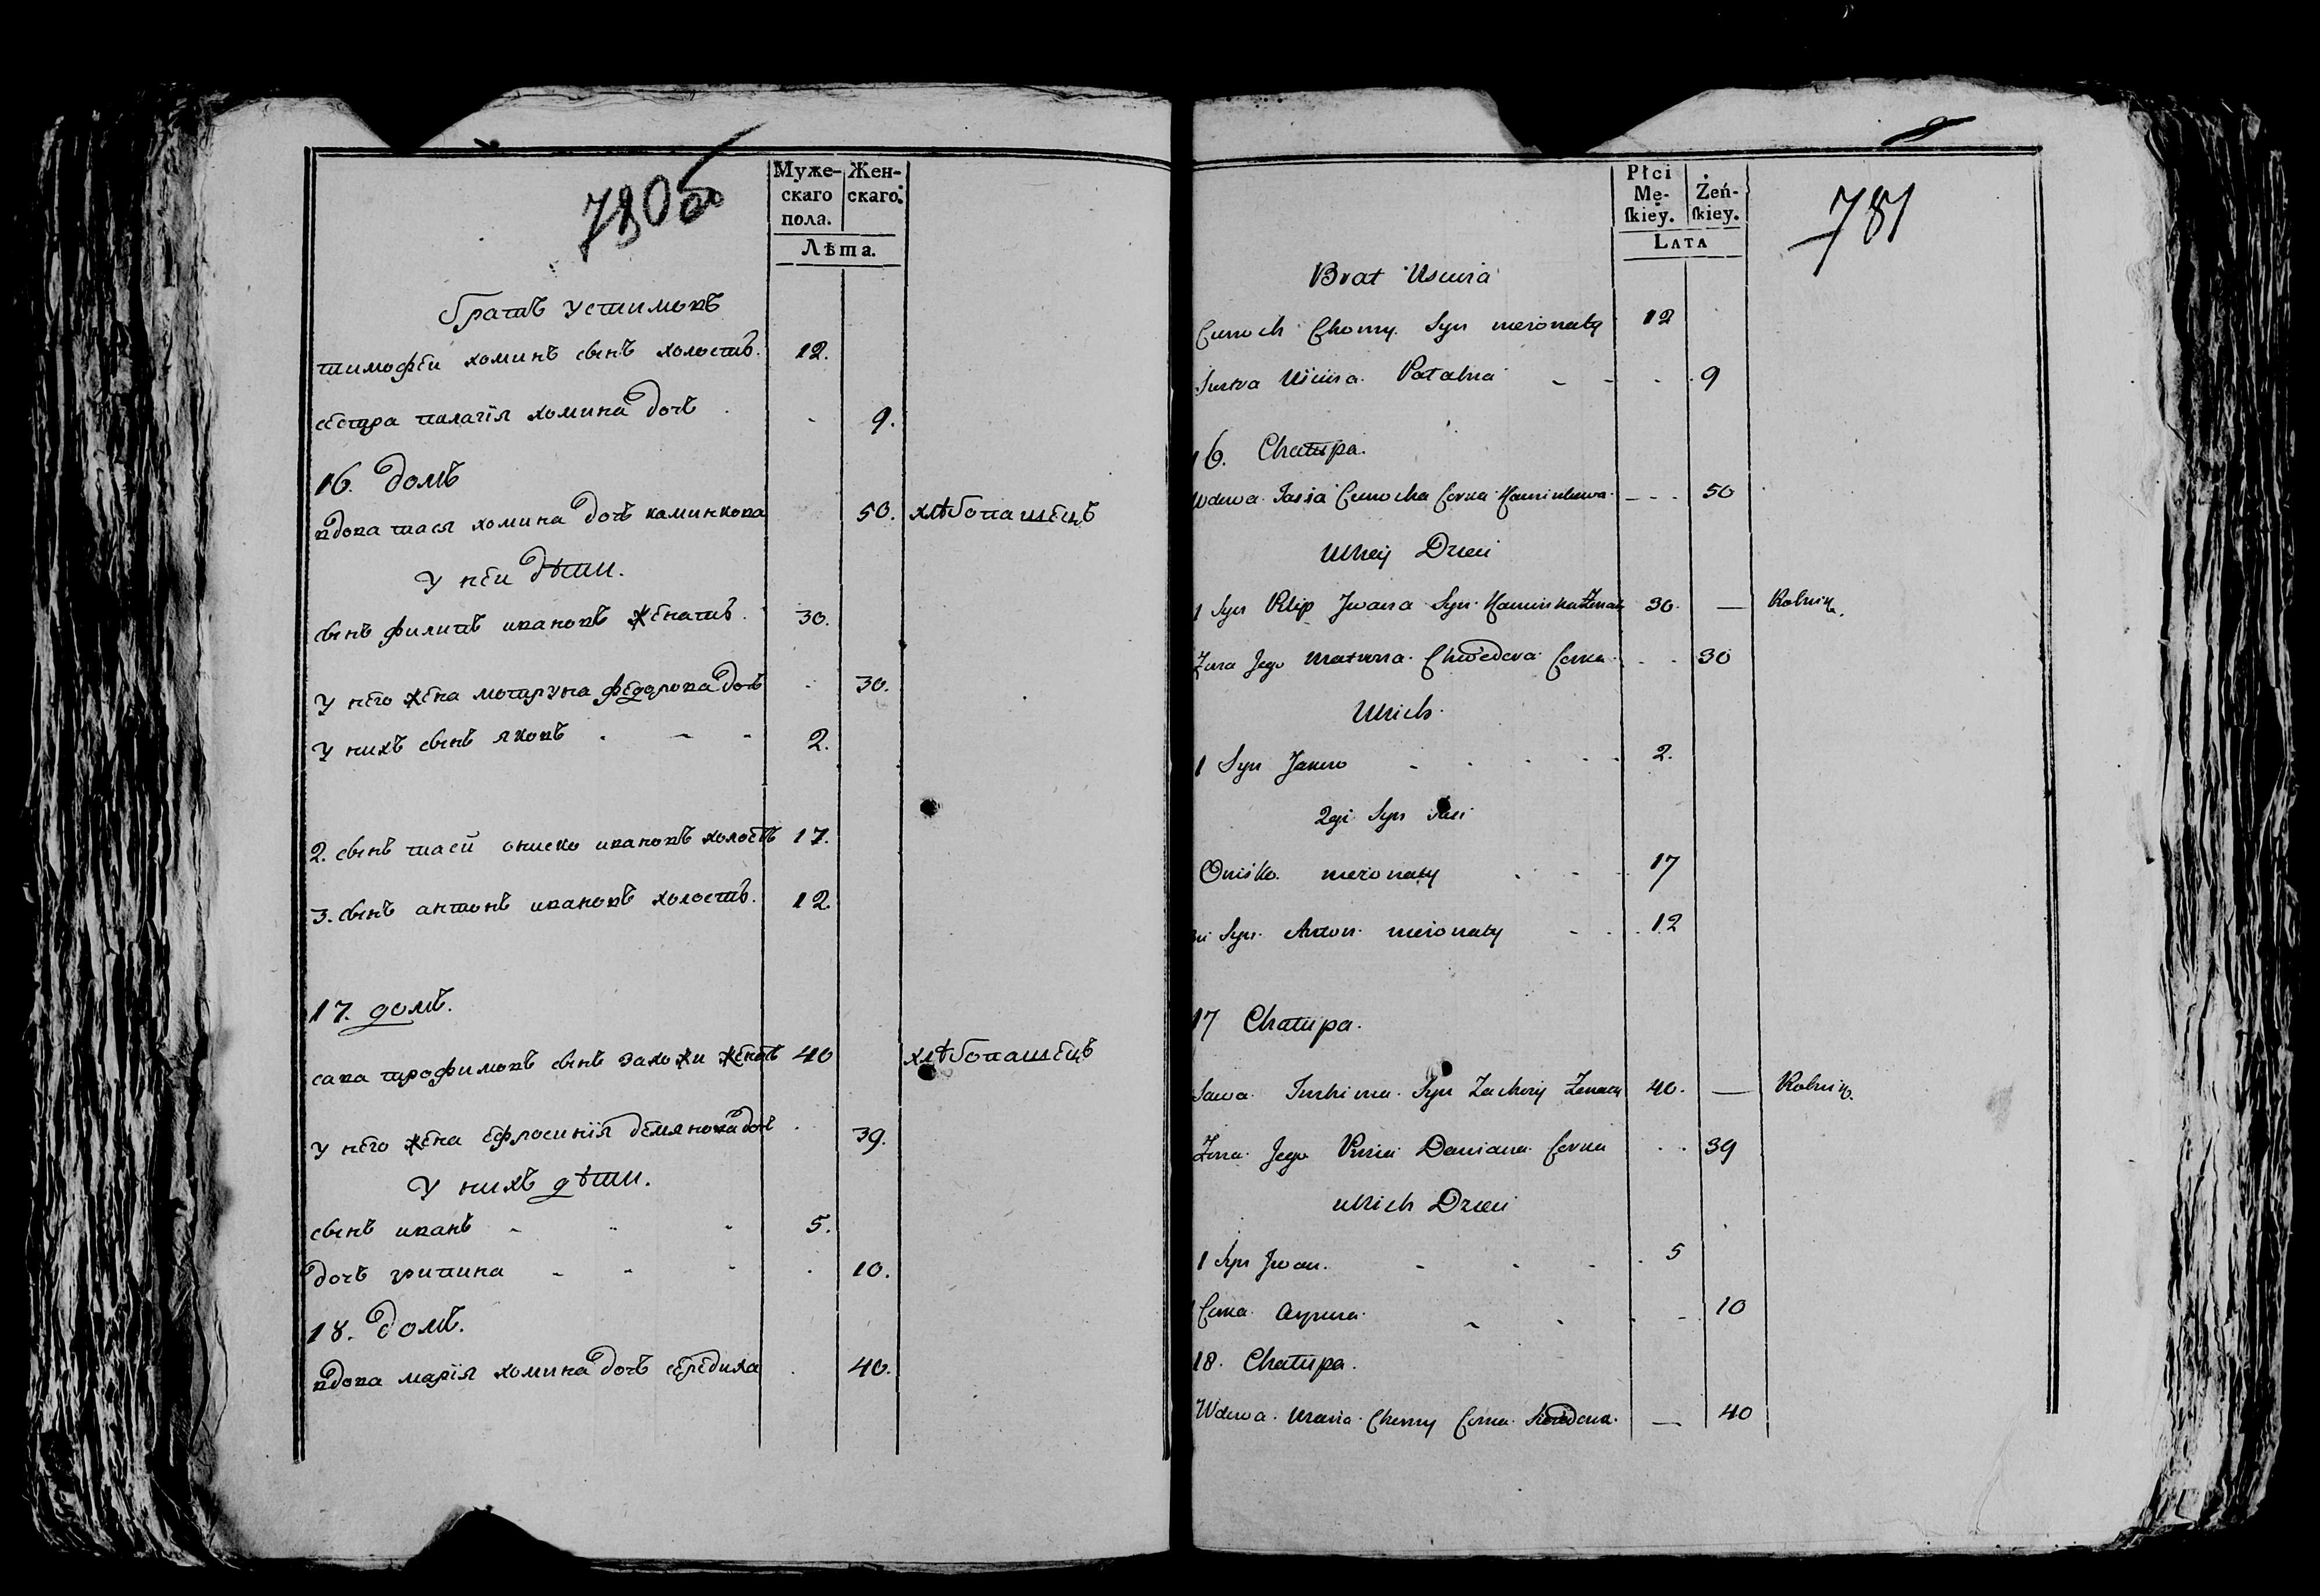 780 об
Муже-
скаго
пола.
Жен-
скаго.
Лѣта.
братъ устимовъ
тимофей хоминъ сынъ холостъ. 12.
сестра палагія хомина дочь - 9.
16. домъ
вдова тася хомина дочь каминкова 50. хлѣбопашецъ
у ней дѣти.
сынъ филипъ ивановъ женатъ. 30.
у него жена мотруна федорова дочь - 30.
у нихъ сынъ яковъ . - - 2.
2. сынъ тасей описко ивановъ холостъ 17.
3. сынъ антонъ ивановъ холостъ. 12.
17. домъ.
сава трофимовъ сынъ захожи женатъ 40 хлѣбопашецъ
у него жена ефросинія демянова дочь . 39.
у нихъ дѣти.
сынъ иванъ - - - 5.
дочь грипина - - - . 10.
18. домъ.
вдова марія хомина дочь середиха . 40.
Płci
Mę-
ſkiey.
Żeń-
ſkiey.
Lata
781
Brat
Chomy Syn niezonaty 12
Patahia - - . 9
16. Chałupa.
Wdowa Tasia Corka - - - 50
Uhey Dzieci
1 Syn Pilip Iwana Syn Kaminka Zonaty 30. — Rolnik.
Zona Jego Matrona Chwedora Corka . . 30
Unich
1 Syn Jakow - . . . . 2.
2gi Syn Tasi
Oniśko niezonaty . - - 17
Syn Anton niezonaty - . . 12
17 Chałupa.
Sawa Syn Zachozy Zonaty 40. — Rolnik.
Zona Jego Damiana Corka . . 39
unich Dzieci
1 Syn Iwan. - . - . 5
Corka - . . - 10
18. Chałupa.
Wdowa Maria Chomy Corka — 40